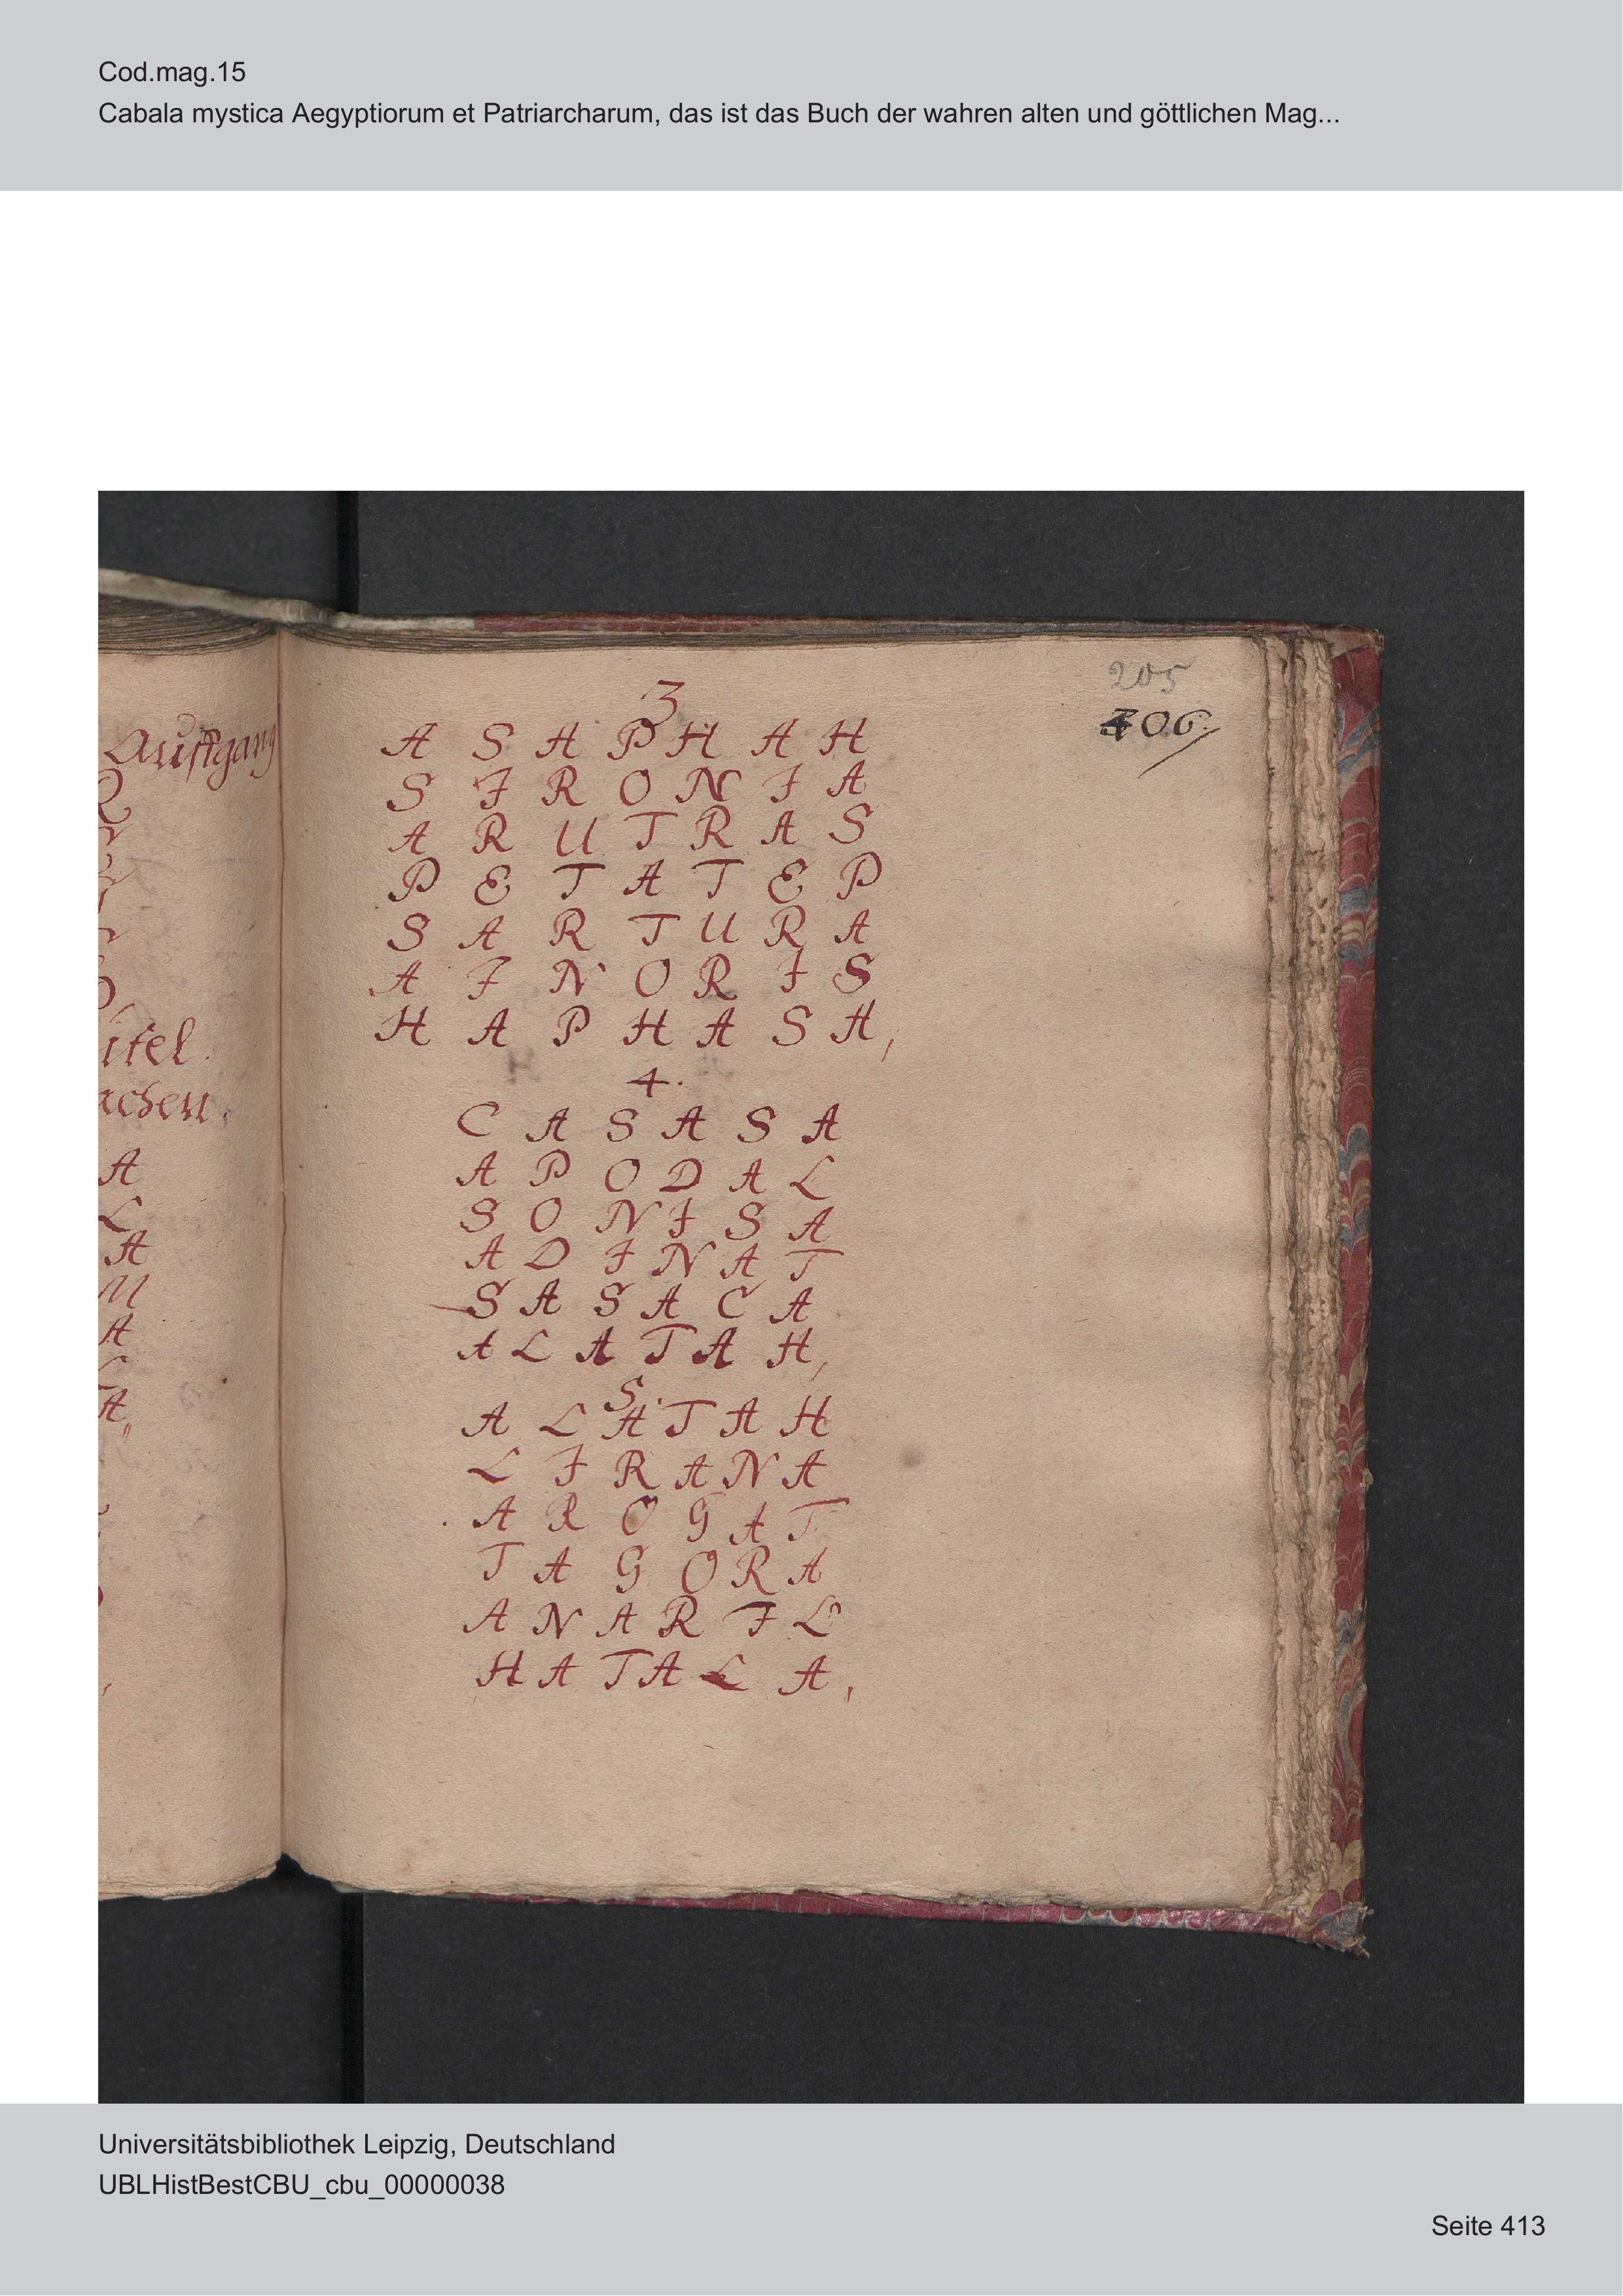 Cod.mag.15
Cabala mystica Aegyptiorum et Patriarcharum, das ist das Buch der wahren alten und göttlichen Mag...
205
406.
Auffgang
itel
achen.
A
L
A
M
A
A
3
A S A P H A H
S I R O N I A
A R U T R A S
P E T A T E P
S A R T U R A
A I N O R I S
H A P H A S A,
4.
C A S A S A
A P O D A L
S O N I S A
A D I N A T
S A S A C A
A L A T A H,
5.
A L A T A H
L I R A N A
A R O G A T
T A G O R A
A N A R I L
H A T A L A,
Universitätsbibliothek Leipzig, Deutschland
UBLHistBestCBU_cbu_00000038
Seite 413